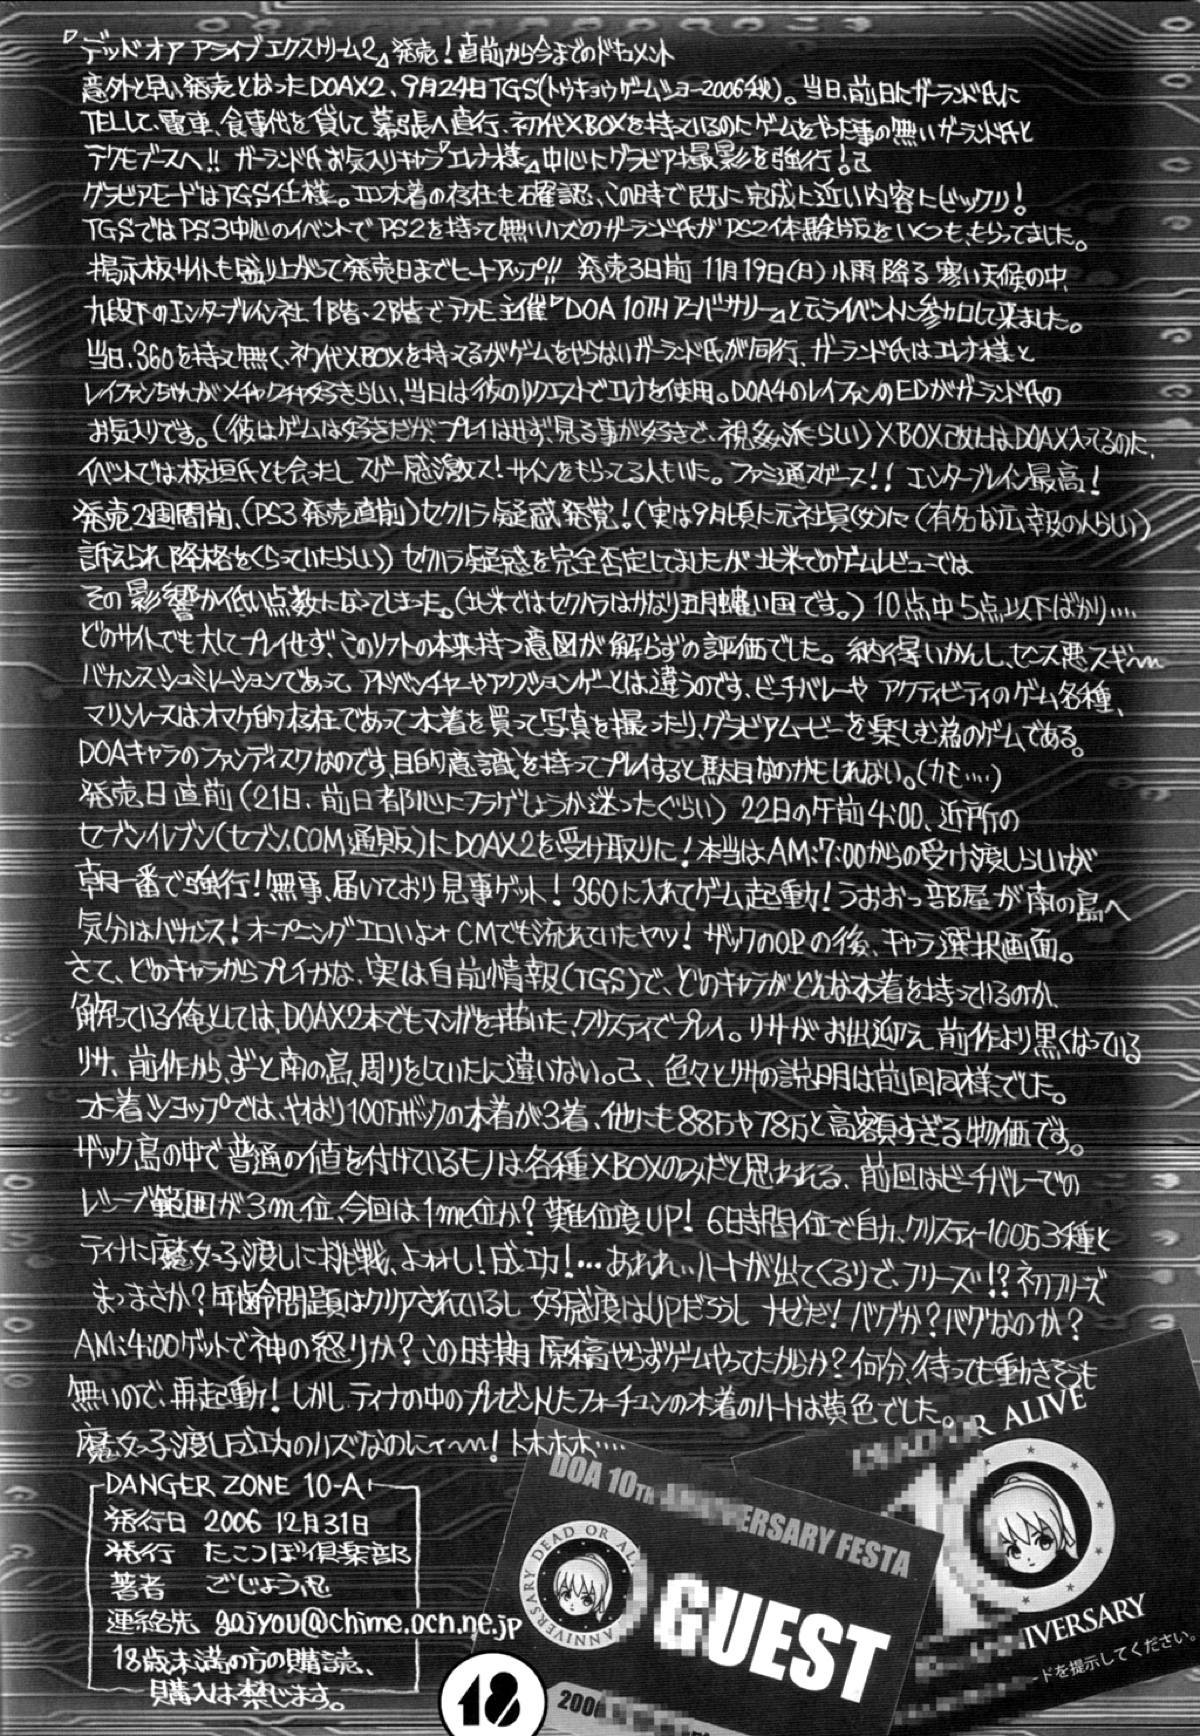 『デッドオアアライブエクストリーム2』発売!直前から今までのドキュメント
意外と早い発売となったDOAX2、9月24日TGS(トウキョウゲームショー2006秋)。当日、前日にガーランド氏に
TELして、電車、食事代を貸して幕張へ直行、初代XBOXを持っているのにゲームをやった事の無いガーランド氏と
テクモブースへ!! ガーランド氏お気入りキャラ『エレナ様』中心にグラビア撮影を強行!
グラビアモードはTGS仕様。エロ水着の存在も確認、この時で既に完成に近い内容にビックリ!
TGSではPS3中心のイベントでPS2を持って無いハズのガーランド氏がPS2体験版をいくつも、もらってました。
掲示板サイトも盛り上がって発売日までヒートアップ!! 発売3日前 11月19日(日)小雨降る寒い天候の中、
九段下のエンターブレイン社1階・2階でテクモ主催『DOA 10THアニバーサリー』と云うイベントに参加して来ました。
当日、360を持って無く、初代XBOXを持ってるがゲームをやらないガーランド氏が同行、ガーランド氏はエレナ様と
レイファンちゃんがメチャクチャ好きらしい、当日は彼のリクエストでエレナを使用。DOA4のレイファンのEDがガーランド氏の
お気入りです。(彼はゲームは好きだが、プレイはせず、見る事が好きで、視姦派らしい)XBOX改にはDOAX入ってるのに、
イベントでは板垣氏とも会ったしスゲー感激ス!サインをもらってる人もいた。ファミ通スゲース!! エンターブレイン最高!
発売2週間前、(PS3発売直前)セクハラ疑惑発覚!(実は9月頃に元社員(女)に(有名な広報の人らしい)
訴えられ降格をくらっていたらしい)セクハラ疑惑を完全否定してましたが北米でのゲームレビューでは
その影響か低い点数になってしまった。(北米ではセクハラはかなり五月蠅い国です。)10点中5点以下ばかり....
どのサイトでも大してプレイせず、このソフトの本来持つ意図が解らずの評価でした。納得いかんし、センス悪スギ〜
バカンスシュミレーションであってアドベンチャーやアクションゲーとは違うのです、ビーチバレーやアクティビティのゲーム各種、
マリンレースはオマケ的存在であって水着を買って写真を撮ったり、グラビアムービーを楽しむ為のゲームである。
DOAキャラのファンディスクなのです、目的意識を持ってプレイすると駄目なのかもしれない。(カモ....)
発売日直前(21日、前日都心にフラゲしようか迷ったぐらい)22日の午前4:00、近所の
セブンイレブン(セブン.COM通販)にDOAX2を受け取りに!本当はAM:7:00からの受け渡しらしいが
朝一番で強行!無事、届いており見事ゲット!360に入れてゲーム起動!うおおっ部屋が南の島へ
気分はバカンス!オープニングエロいよォCMでも流れていたヤツ!ザックのOPの後、キャラ選択画面。
さて、どのキャラからプレイかな、実は自前情報(TGS)で、どのキャラがどんな水着を持っているのか、
解っている俺としては、DOAX2本でもマンガを描いた、クリスティでプレイ。リサがお出迎え、前作より黒くなっている
リサ、前作から、ずーと南の島、周りをしていたに違いない。 色々とリサの説明は前回同様でした。
水着ショップでは、やはり100万ザックの水着が3着、他にも88万や78万と高額すぎる物価です。
ザック島の中で普通の値を付けているモノは各種XBOXのみだと思われる、前回はビーチバレーでの
レシーブ範囲が3m位、今回は1m位か?難位度UP!6日時間位で自力、クリスティー100万3種と
ティナに魔女っ子渡しに挑戦、よォォし!成功!…あれれ…ハートが出てくるリで、フリーズ!?初フリーズ
まっまさか?年齢問題はクリアされているし好感度はUPだろうし ナゼだ!バグか?バグなのか?
AM:4:00ゲットで神の怒りか?この時期原稿やらずゲームやってたからか?何分、待っても動きそうも
無いので、再起動!しかしティナの中のプレゼントしたフォーチュンの水着のハートは黄色でした。
魔女っ子渡し成功のハズなのにィ〜!トホホホ....
DANGER ZONE 10-A
発行日 2006 12月31日
発行 たこつぼ倶楽部
著者 ごじょう忍
連絡先 gojyou@chime.ocn.ne.jp
18歳未満の方の購読、
購入は禁じます。
18
DOA 10TH ANNIVERSARY FESTA
DEAD OR ALIVE
ANNIVERSARY
GUEST
DEAD OR ALIVE
ANNIVERSARY
ードを提示してください。